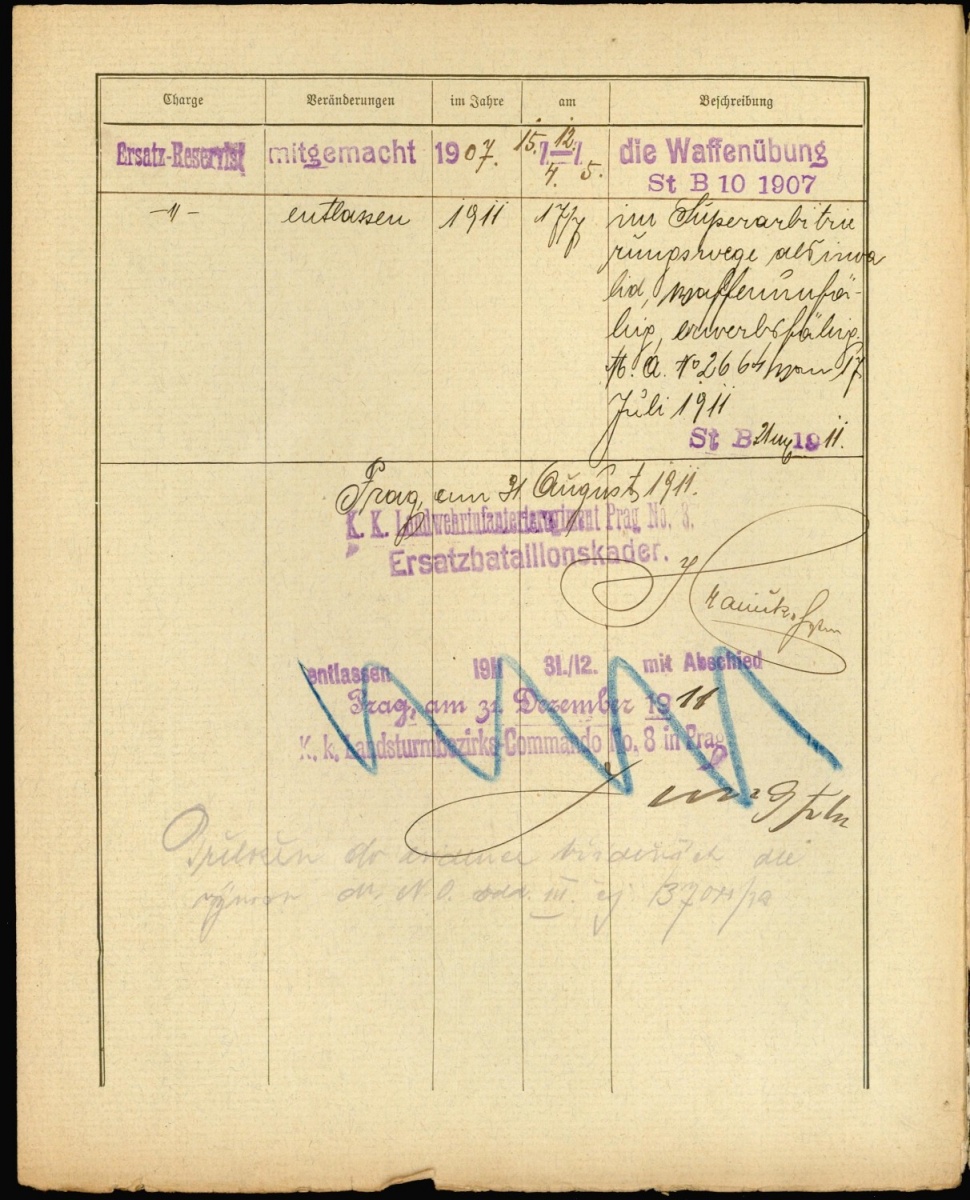 Charge Veränderungen im Jahre am Beschreibung
Ersatz-Reservist mitgemacht 1907. 15./4. — 12./5. die Waffenübung
St B 10 1907
–〃– entlassen 1911 17/7 im Superarbitrie
rungswege als inva
lid, waffenunfä-
hig, erwerbsfähig.
M. A. No 2664 vom 17
Juli 1911
St B Aug 1911.
Prag, am 31 August 1911.
K. K. Landwehrinfanterieregiment Prag No. 8.
Ersatzbataillonskader.
entlassen 1911 31./12. mit Abschied
Prag, am 31 Dezember 1911
K. k. Landsturmbezirks-Commando No. 8 in Prag
do evidence
N. O. odd. III. čj.